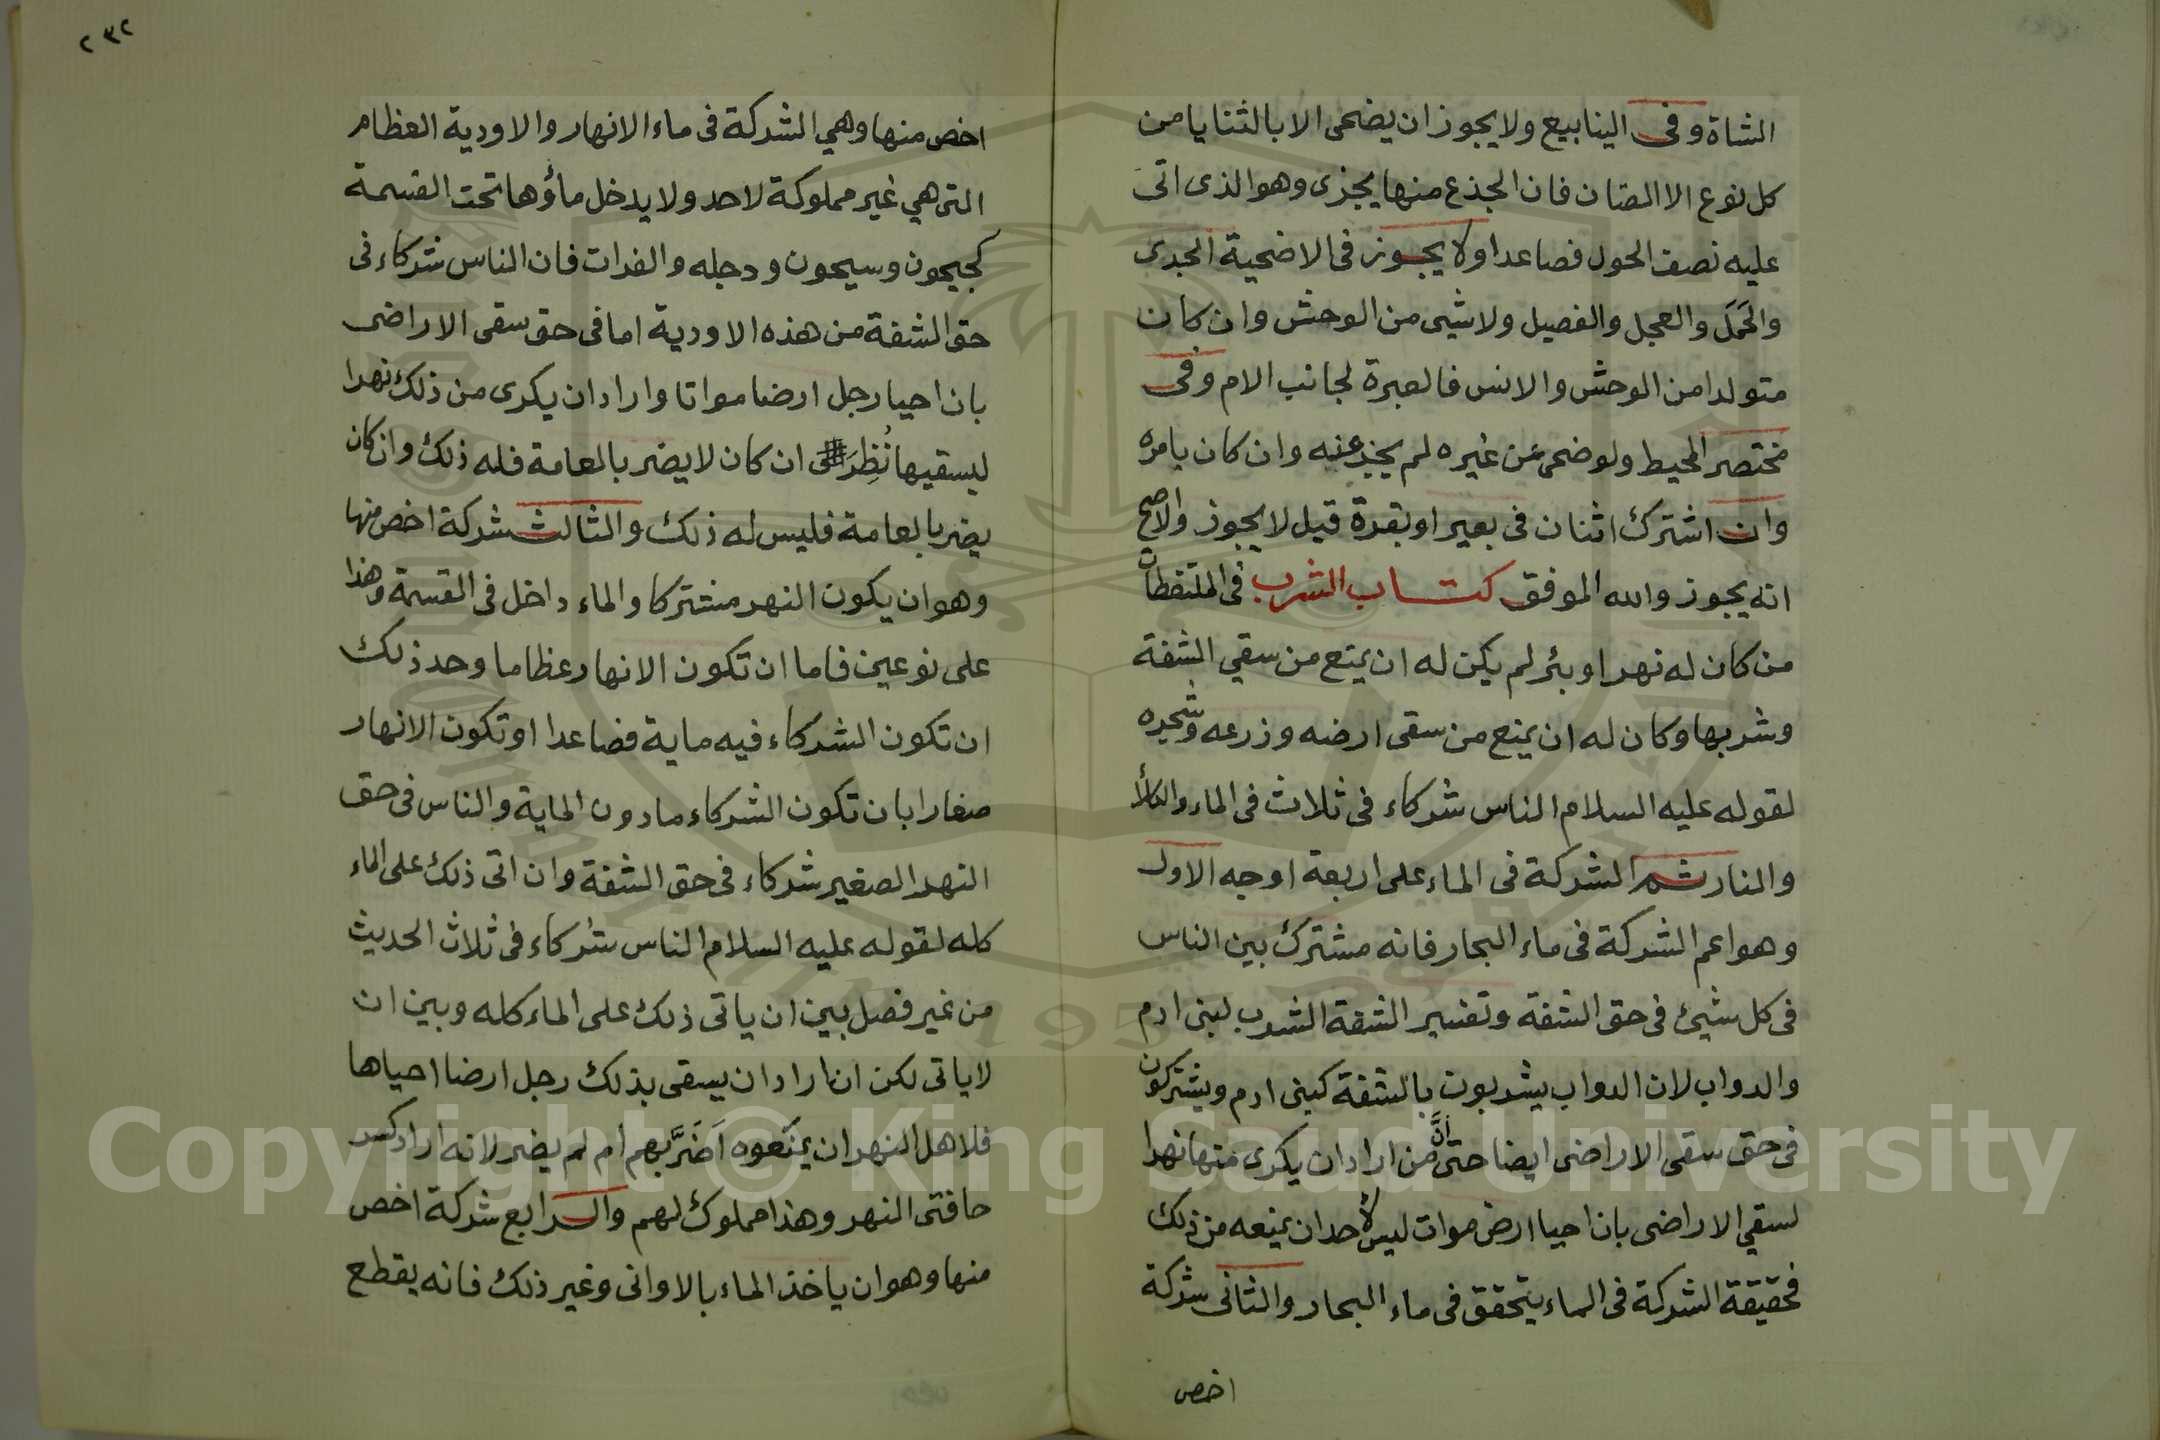 الشاة وفى الينابيع ولا يجوز ان يضحى الا بالثنايا من
كل نوع الا الضان فان الجذع منها يجزى وهو الذى اتى
عليه نصف الحول فصاعدا ولا يجوز فى الاضحية الجدى
والحَمَل والعجل والفصيل ولا شيى من الوحش وان كان
متولدا من الوحش والانس فالعبرة لجانب الام وفى
مختصر المحيط ولو ضحى عن غيره لم يجز عنه وان كان بامره
وان اشترك اثنان فى بعير او بقرة قيل لا يجوز والاصح
انه يجوز والله الموفق كتاب الشرب فى الملتقطات
من كان له نهر او بئر لم يكن له ان يمنع من سقي الشفة
وشربها وكان له ان يمنع من سقى ارضه وزرعه وشجره
لقوله عليه السلام الناس شركاء فى ثلاث فى الماء والكلأ
والنار ثم الشركة فى الماء على اربعة اوجه الاول
وهو اعم الشركة فى ماء البحار فانه مشترك بين الناس
فى كل شيئ فى حق الشفة وتفسير الشفة الشرب لبنى ادم
والدواب لان الدواب يشربون بالشفة كبنى ادم ويشتركون
فى حق سقى الاراضى ايضا حتى أنَّ من اراد ان يكرى منها نهرا
لسقي الاراضى بان احيا ارض موات ليس لاحد ان يمنعه من ذلك
فحقيقة الشركة فى الماء يتحقق فى ماء البحار والثانى شركة
اخص
٢٣٢
اخص منها وهي الشركة فى ماء الانهار والاودية العظام
التى هي غير مملوكة لاحد ولا يدخل ماؤها تحت القسمة
كجيحون وسيحون ودجله والفرات فان الناس شركاء فى
حق الشفة من هذه الاودية اما فى حق سقى الاراضى
بان احيا رجل ارضا مواتا واراد ان يكرى من ذلك نهرا
ليسقيها نُظِرَ ان كان لا يضر بالعامة فله ذلك وان كان
يضر بالعامة فليس له ذلك والثالث شركة اخص منها
وهو ان يكون النهر مشتركا والماء داخل فى القسمة وهذا
على نوعين فاما ان تكون الانهار عظاما وحد ذلك
ان تكون الشركاء فيه ماية فصاعدا او تكون الانهار
صغارا بان تكون الشركاء ما دون الماية والناس فى حق
النهر الصغير شركاء فى حق الشفة وان اتى ذلك على الماء
كله لقوله عليه السلام الناس شركاء فى ثلاث الحديث
من غير فصل بين ان ياتى ذلك على الماء كله وبين ان
لا ياتى لكن ان اراد ان يسقى بذلك رجل ارضا احياها
فلاهل النهر ان يمنعوه اَضَرَّ بهم ام لم يضر لانه اراد كسر
حافتى النهر وهذا مملوك لهم والرابع شركة اخص
منها وهو ان ياخذ الماء بالاوانى وغير ذلك فانه يقطع
Copyright © King Saud University